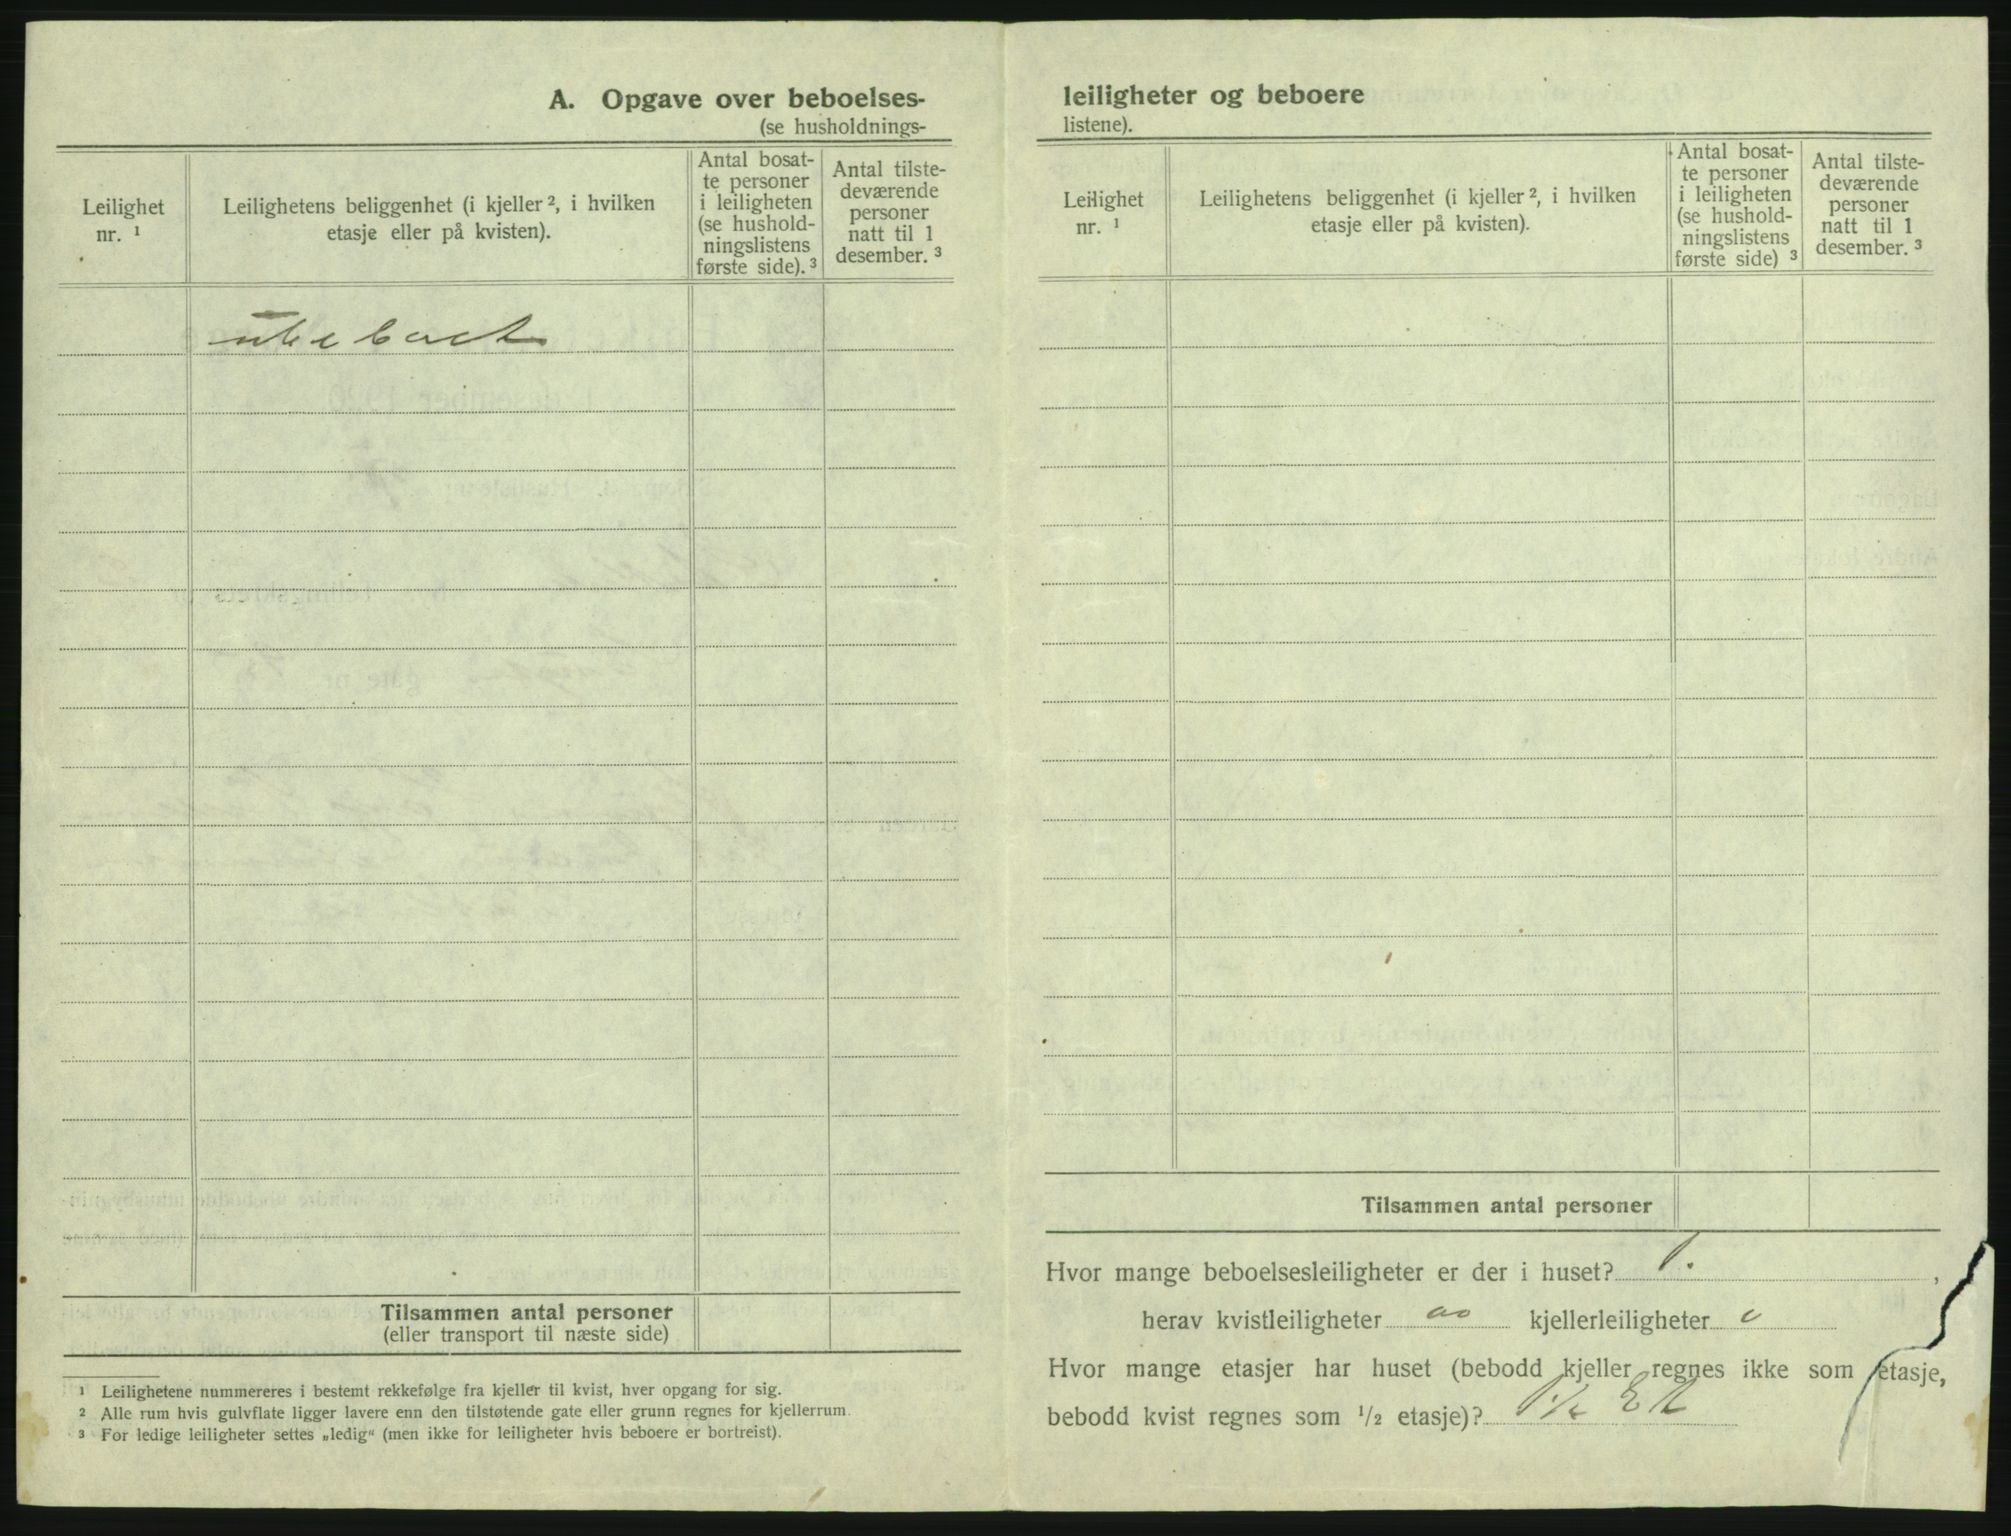 A. Opgave over beboelses-
(se husholdnings-
Leilighet nr. 1
Leilighetens beliggenhet (i kjeller 2, i hvilken etasje eller på kvisten).
Antal bosat-
te personer
i leiligheten
(se hushold-
ningslistens
første side). 3
Antal tilste-
deværende
personer
natt til 1
desember. 3
ubeboet
Tilsammen antal personer
(eller transport til næste side)
1 Leilighetene nummereres i bestemt rekkefølge fra kjeller til kvist, hver opgang for sig.
2 Alle rum hvis gulvflate ligger lavere enn den tilstøtende gate eller grunn regnes for kjellerrum.
3 For ledige leiligheter settes „ledig“ (men ikke for leiligheter hvis beboere er bortreist).
leiligheter og beboere
listene).
Leilighet nr. 1
Leilighetens beliggenhet (i kjeller 2, i hvilken etasje eller på kvisten).
Antal bosat-
te personer
i leiligheten
(se hushold-
ningslistens
første side) 3
Antal tilste-
deværende
personer
natt til 1
desember. 3
Tilsammen antal personer
Hvor mange beboelsesleiligheter er der i huset? 1. ,
herav kvistleiligheter oo kjellerleiligheter o
Hvor mange etasjer har huset (bebodd kjeller regnes ikke som etasje,
bebodd kvist regnes som 1/2 etasje)? 1 1/2 Et